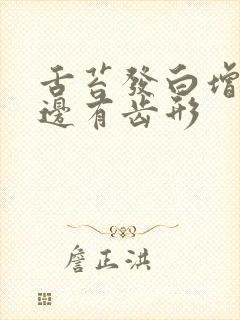 舌苔發白增
邊有齒形
詹正洪